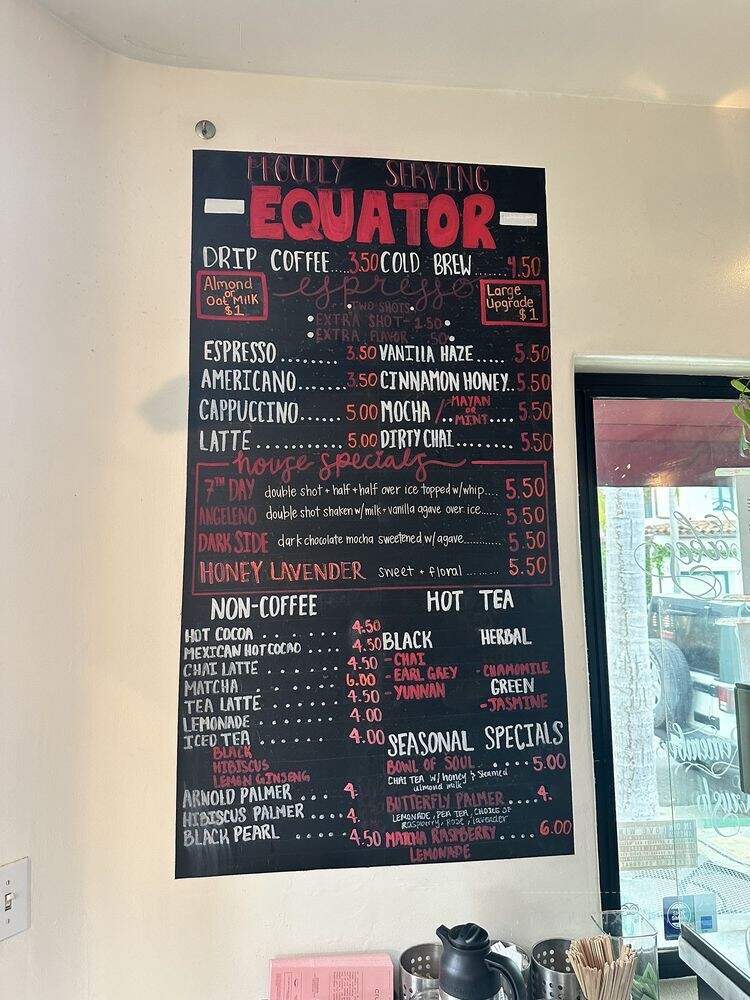 PROUDLY SERVING
EQUATOR
DRIP COFFEE....3.50 COLD BREW.......4.50
Almond or Oat Milk $1
espresso
Large Upgrade $1
•TWO SHOTS•
•EXTRA SHOT-1.50•
•EXTRA FLAVOR .50•
ESPRESSO.........3.50 VANILLA HAZE.....5.50
AMERICANO........3.50 CINNAMON HONEY..5.50
CAPPUCCINO......5.00 MOCHA/..MAYAN OR MINT....5.50
LATTE............5.00 DIRTY CHAI.........5.50
house specials
7TH DAY double shot + half + half over ice topped w/whip....5.50
ANGELENO double shot shaken w/milk + vanilla agave over ice......5.50
DARK SIDE dark chocolate mocha sweetened w/agave...........5.50
HONEY LAVENDER sweet + floral........5.50
NON-COFFEE
HOT COCOA......4.50
MEXICAN HOT COCAO....4.50
CHAI LATTE......4.50
MATCHA.......6.00
TEA LATTE......4.50
LEMONADE......4.00
ICED TEA......4.00
BLACK
HIBISCUS
LEMON GINSENG
ARNOLD PALMER....4.
HIBISCUS PALMER....4.
BLACK PEARL.....4.50
HOT TEA
BLACK
-CHAI
-EARL GREY
-YUNNAN
HERBAL
-CHAMOMILE
GREEN
-JASMINE
SEASONAL SPECIALS
BOWL OF SOUL.....5.00
CHAI TEA w/honey & steamed
almond milk
BUTTERFLY PALMER....4.
LEMONADE, PEA TEA, CHOICE OF
Raspberry, Rose, lavender
MATCHA RASPBERRY....6.00
LEMONADE